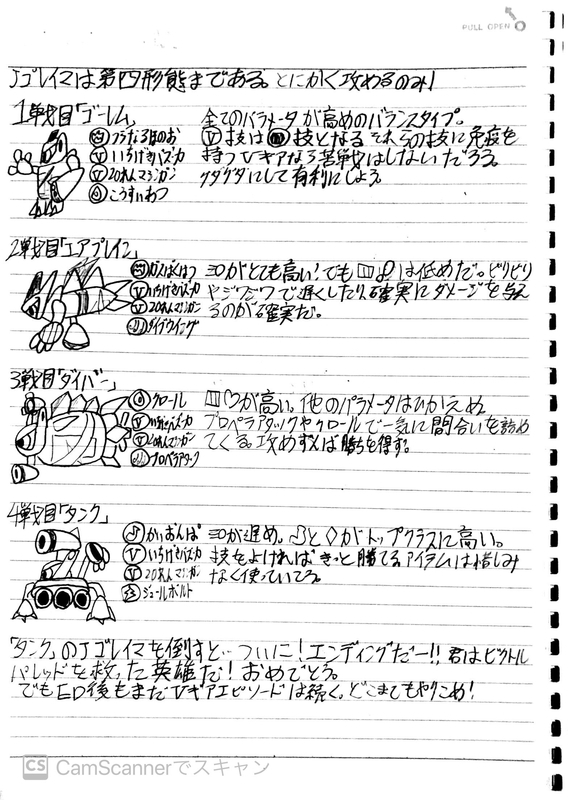 PULL OPEN
Jゴレイマは第四形態まである。とにかく攻めるのみ!
1戦目「ゴーレム」
全てのパラメータが高めのバランスタイプ。
うなるほのお
V技は 技となる それらの技に免疫を
V いちげきバズーカ
持つVギアなら苦戦はしないだろう。
V 20れんマシンガン
グダグダにして有利にしよう。
こうすいあつ
2戦目「エアプレイン」
ガスばくはつ
がとても高い!でも は低めだ。ビリビリ
V いちげきバズーカ
やジワジワで遅くしたり、確実にダメージを与え
V 20れんマシンガン
るのが確実だ。
ダイブウイング
3戦目「ダイバー」
クロール
が高い。他のパラメータはひかえめ
V いちげきバズーカ
プロペラアタックやクロールで一気に間合いを詰め
V 20れんマシンガン
てくる。攻めずんば勝ちを得ず。
プロペラアタック
4戦目「タンク」
かいおんぱ
が遅め。 と がトップクラスに高い。
V いちげきバズーカ
技をよければきっと勝てる。アイテムは惜しみ
V 20れんマシンガン
なく使っていこう。
ジュールボルト
「タンク」のJゴレイマを倒すと…ついに!エンディングだー!!君はビクトル
パレッドを救った英雄だ!おめでとう。
でもED後もまだVギアエピソードは続く。どこまでもやりこめ!
CS CamScannerでスキャン